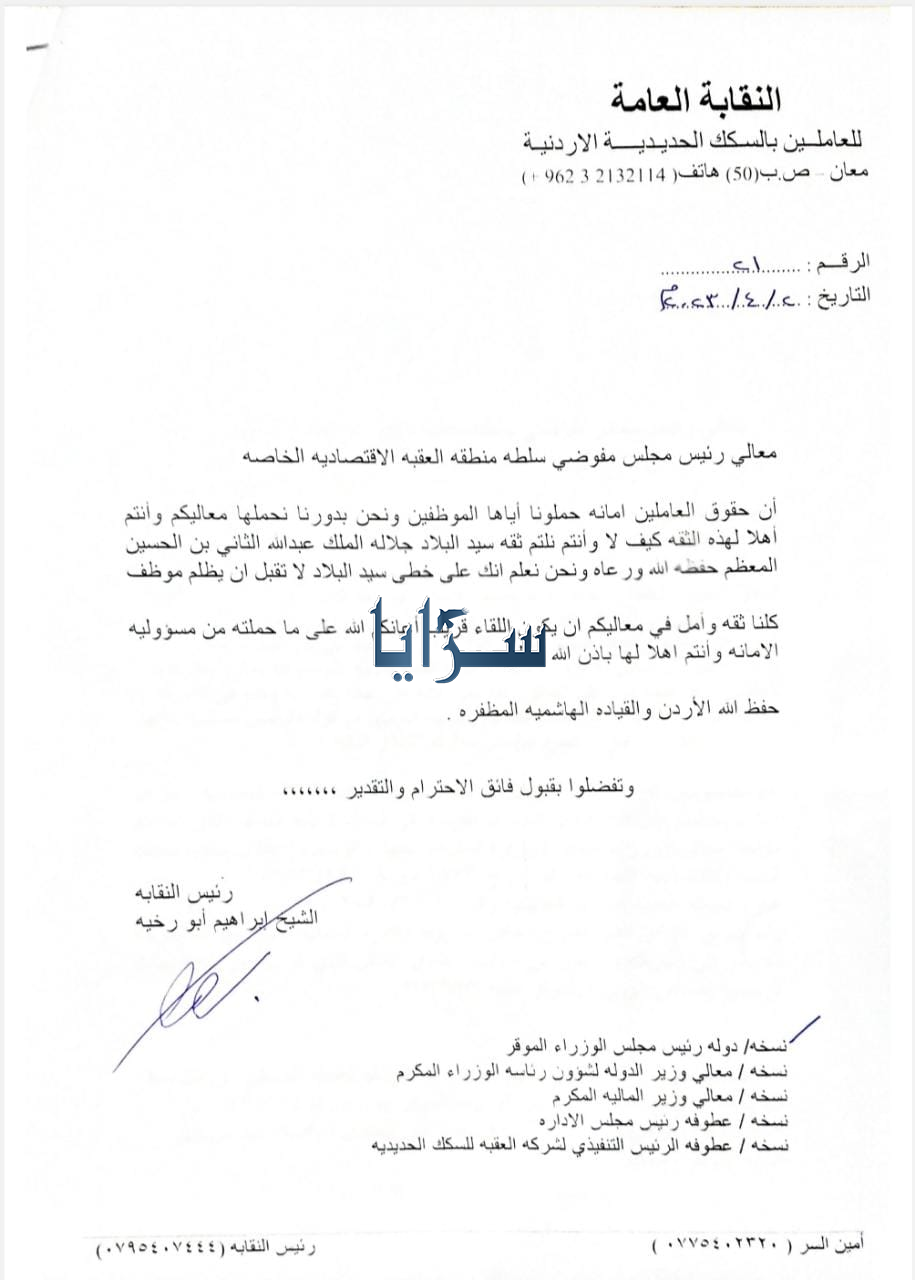 النقابة العامة
للعاملين بالسكك الحديدية الاردنية
معان - ص.ب(50) هاتف( 2132114 3 962 +)
الرقم : ........٢١....................
التاريخ : ..٢../..٤../..٢٠٢٣م
معالي رئيس مجلس مفوضي سلطه منطقه العقبه الاقتصاديه الخاصه
أن حقوق العاملين امانه حملونا أياها الموظفين ونحن بدورنا نحملها معاليكم وأنتم
أهلا لهذه الثقه كيف لا وأنتم نلتم ثقه سيد البلاد جلاله الملك عبدالله الثاني بن الحسين
المعظم حفظه الله ورعاه ونحن نعلم انك على خطى سيد البلاد لا تقبل ان يظلم موظف
كلنا ثقه وأمل في معاليكم ان يكون اللقاء قريب أعانكم الله على ما حملته من مسؤوليه
الامانه وأنتم اهلا لها باذن الله
سرايا
حفظ الله الأردن والقياده الهاشميه المظفره .
وتفضلوا بقبول فائق الاحترام والتقدير ،،،،،،،
رئيس النقابه
الشيخ إبراهيم أبو رخيه
نسخه/ دوله رئيس مجلس الوزراء الموقر
نسخه / معالي وزير الدوله لشؤون رئاسه الوزراء المكرم
نسخه / معالي وزير الماليه المكرم
نسخه / عطوفه رئيس مجلس الاداره
نسخه / عطوفه الرئيس التنفيذي لشركه العقبه للسكك الحديديه
أمين السر ( ٠٧٧٥٤٠٢٣٢٠ ) رئيس النقابه (٠٧٩٥٤٠٧٤٤٤)